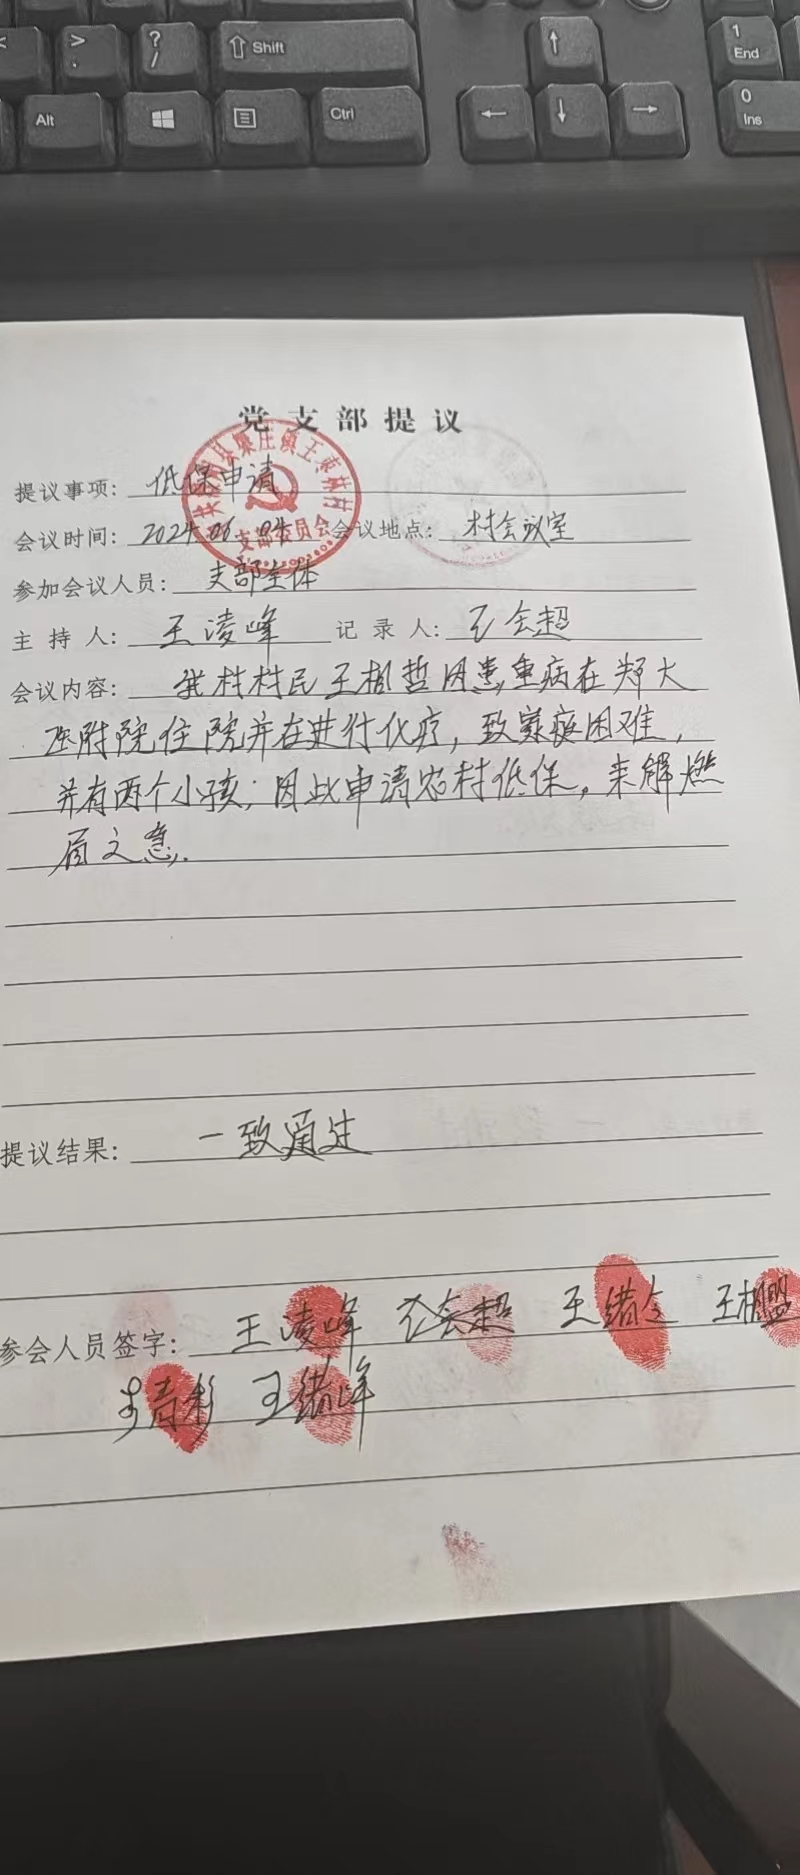 >
.
?
/
Shift
↑
1
End
Alt
Ctrl
←
↓
→
0
Ins
党支部提议
提议事项: 低保申请
会议时间: 2024.06.04 会议地点: 村会议室
支部委员会
参加会议人员: 支部全体
主持人: 王凌峰 记录人: 王会超
会议内容: 我村村民王 哲因患重病在郑大
医附院住院并在进行化疗，致家庭困难，
并有两个小孩；因此申请农村低保，来解燃
眉之急.
提议结果: 一致通过
参会人员签字: 王凌峰 王会超 王绪 王
王绪峰